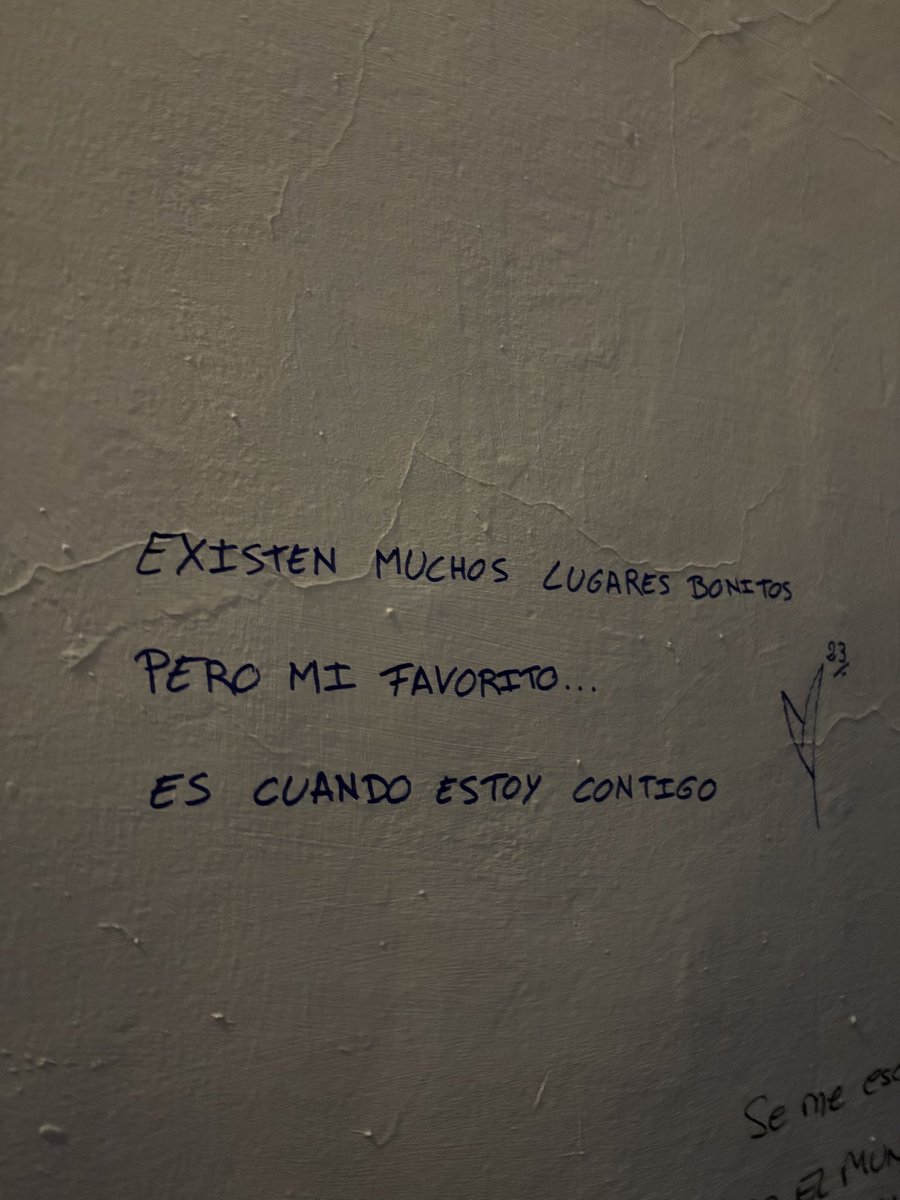 EXISTEN MUCHOS LUGARES BONITOS
PERO MI FAVORITO...
ES CUANDO ESTOY CONTIGO
23
Se me
EL